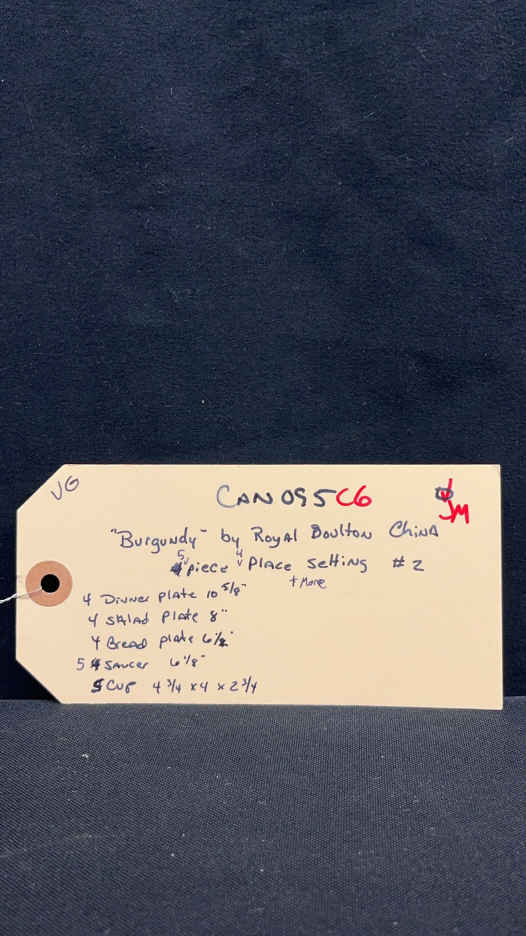 VG
CAN095C6
JM
"Burgundy" by Royal Doulton China
5 piece 4 Place Setting #2
+ More
4 Dinner plate 10 5/8"
4 Salad Plate 8"
4 Bread plate 6 1/2"
5 Saucer 6 1/8"
5 Cup 4 3/4 x 4 x 2 3/4